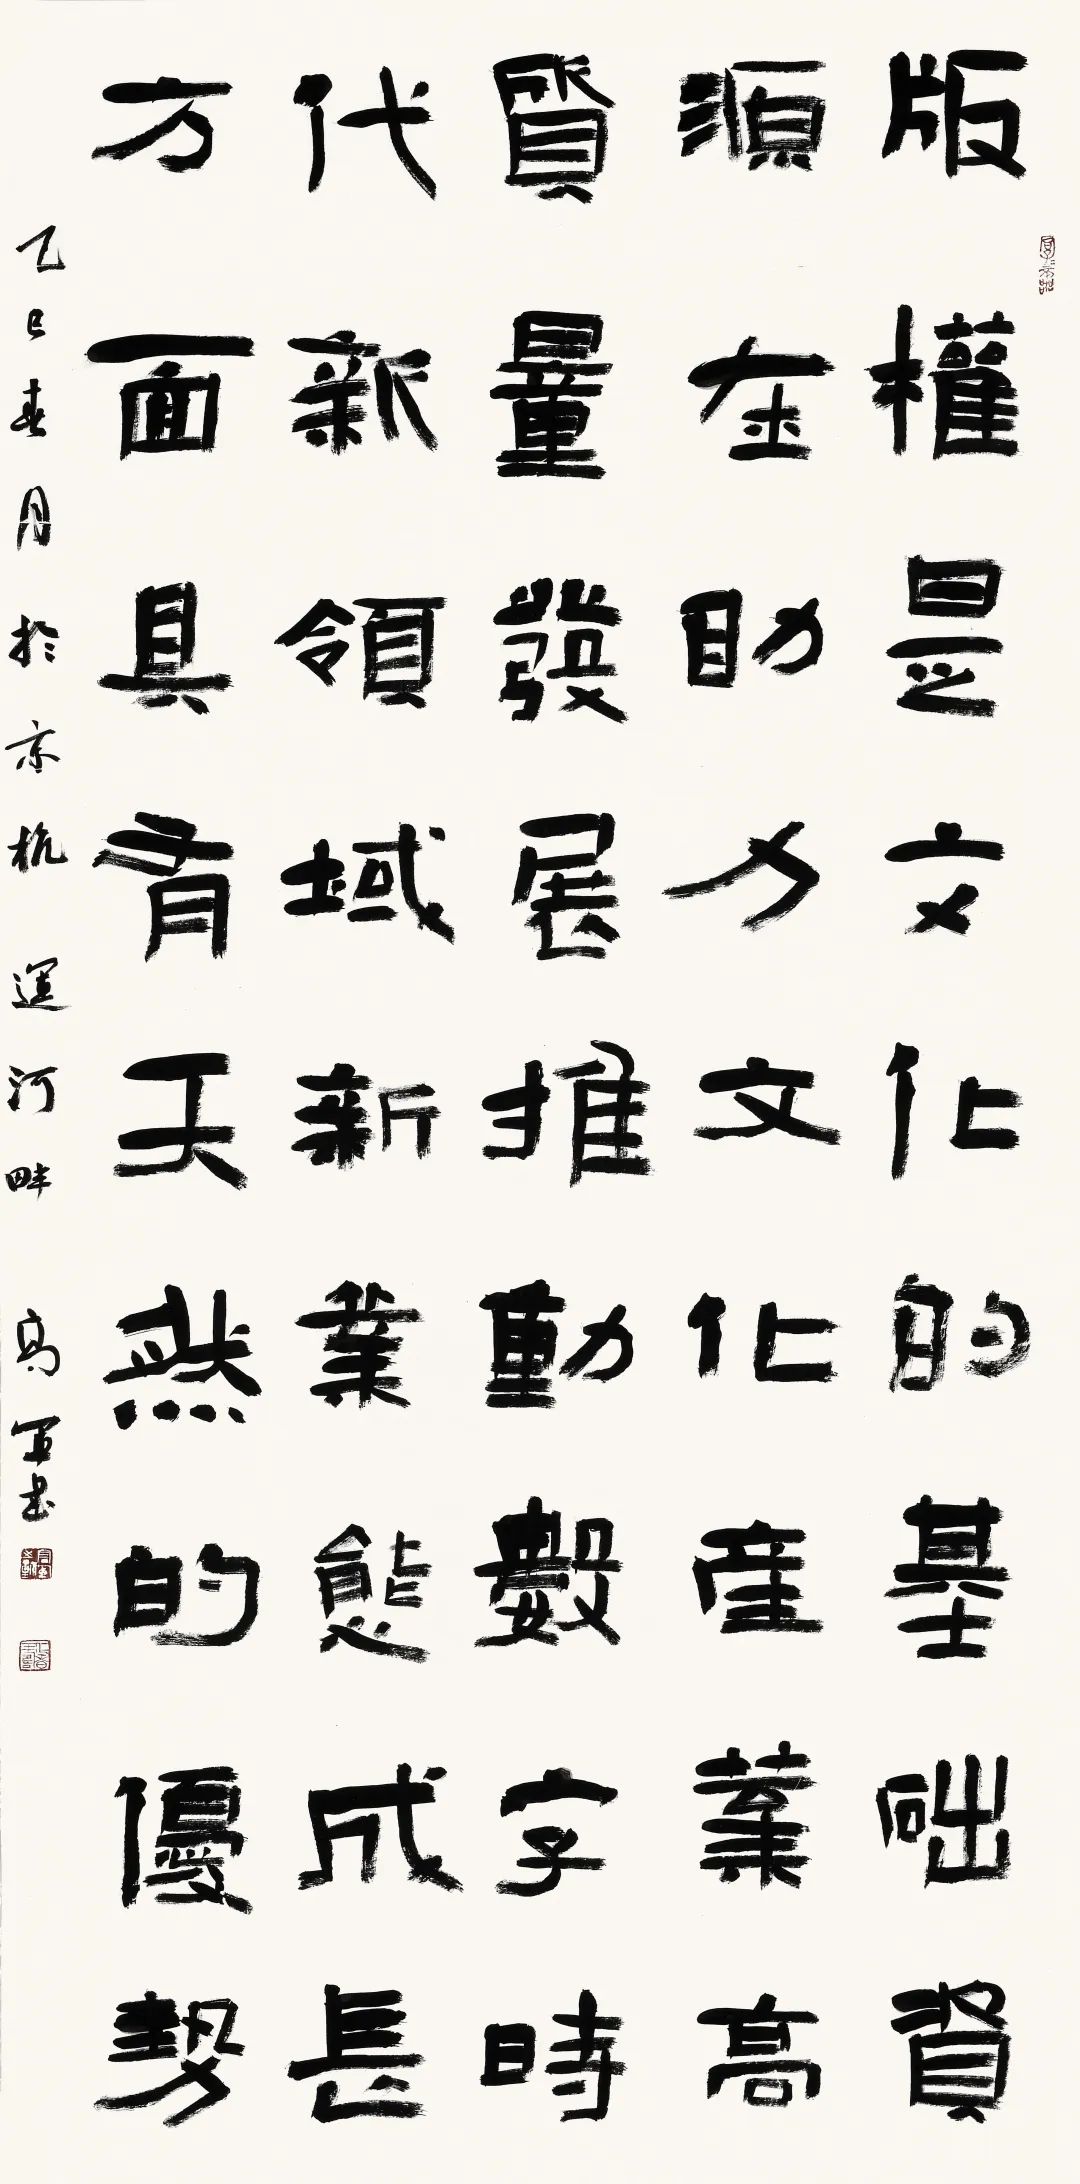 版權是文化的基础資
源在助力文化產業高
質量發展推動數字時
代新領域新業態成長
方面具有天然的優勢
乙巳春月於京杭運河畔 高軍书